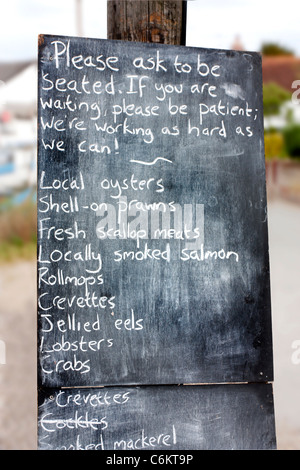 Please ask to be
Seated. If you are
waiting, please be patient;
we're working as hard as
we can!
Local oysters
Shell-on prawns
Fresh scallop meats
Locally smoked Salmon
Rollmops
Crevettes
Jellied eels
Lobsters
Crabs
Crevettes
Cockles
Smoked mackerel
alamy
Image ID: C6KT9P
www.alamy.com